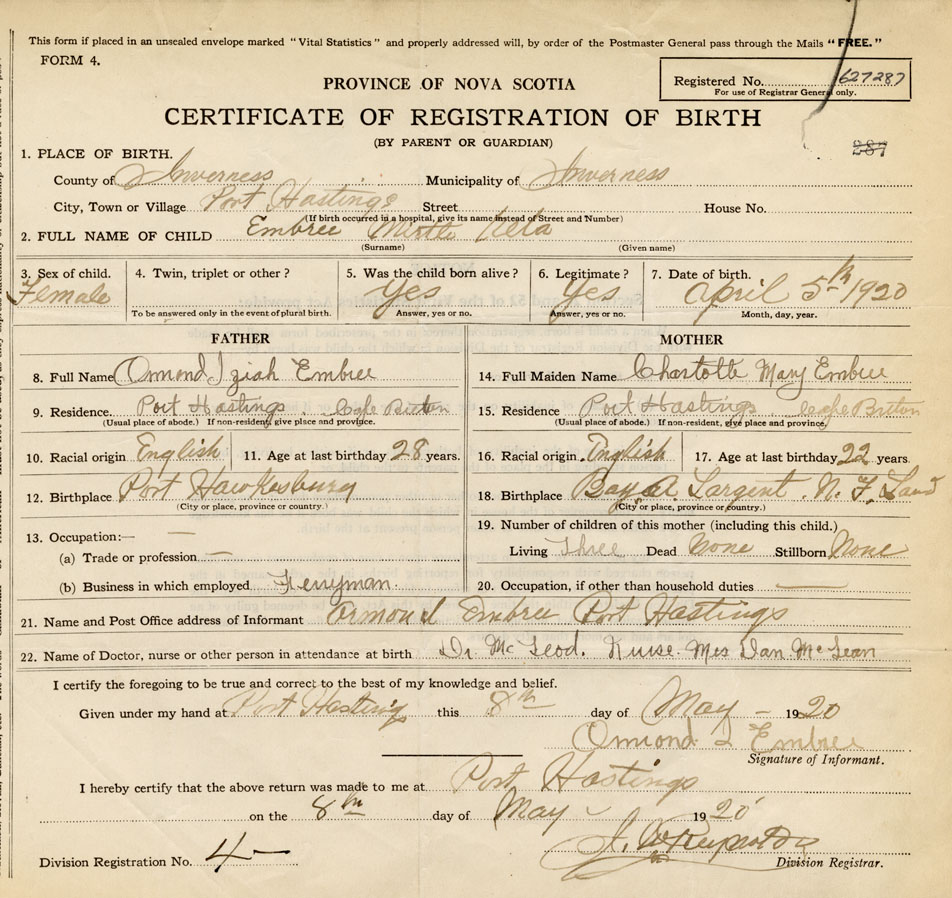 This form if placed in an unsealed envelope marked "Vital Statistics" and properly addressed will, by order of the Postmaster General pass through the Mails "FREE."
FORM 4.
Registered No. 627287
For use of Registrar General only.
PROVINCE OF NOVA SCOTIA
CERTIFICATE OF REGISTRATION OF BIRTH
(BY PARENT OR GUARDIAN)
287
1. PLACE OF BIRTH.
County of Inverness Municipality of Inverness
City, Town or Village Port Hastings Street House No.
(If birth occurred in a hospital, give its name instead of Street and Number)
2. FULL NAME OF CHILD Embree
(Surname) (Given name)
3. Sex of child. 4. Twin, triplet or other? 5. Was the child born alive? 6. Legitimate? 7. Date of birth.
Female Yes Yes April 5th 1920
To be answered only in the event of plural birth. Answer, yes or no. Answer, yes or no. Month, day, year.
FATHER MOTHER
8. Full Name Ormond Embree 14. Full Maiden Name Mary Embree
9. Residence. Port Hastings. Cape Breton 15. Residence Port Hastings. Cape Breton
(Usual place of abode.) If non-resident, give place and province. (Usual place of abode.) If non-resident, give place and province.
10. Racial origin English 11. Age at last birthday 28 years. 16. Racial origin. English 17. Age at last birthday 22 years.
12. Birthplace Port Hawkesbury 18. Birthplace Bay Largent. N. F. Land
(City or place, province or country.) (City or place, province or country.)
13. Occupation:— — 19. Number of children of this mother (including this child.)
(a) Trade or profession — Living Three Dead None Stillborn None
(b) Business in which employed Ferryman. 20. Occupation, if other than household duties —
21. Name and Post Office address of Informant Ormond I Embree Port Hastings
22. Name of Doctor, nurse or other person in attendance at birth Dr. McLeod. Nurse. Mrs Dan McLean
I certify the foregoing to be true and correct to the best of my knowledge and belief.
Given under my hand at Port Hastings this 8th day of May – 1920
Ormond I Embree
Signature of Informant.
I hereby certify that the above return was made to me at Port Hastings
on the 8th day of May 1920
Reynolds
Division Registration No. 4 — Division Registrar.